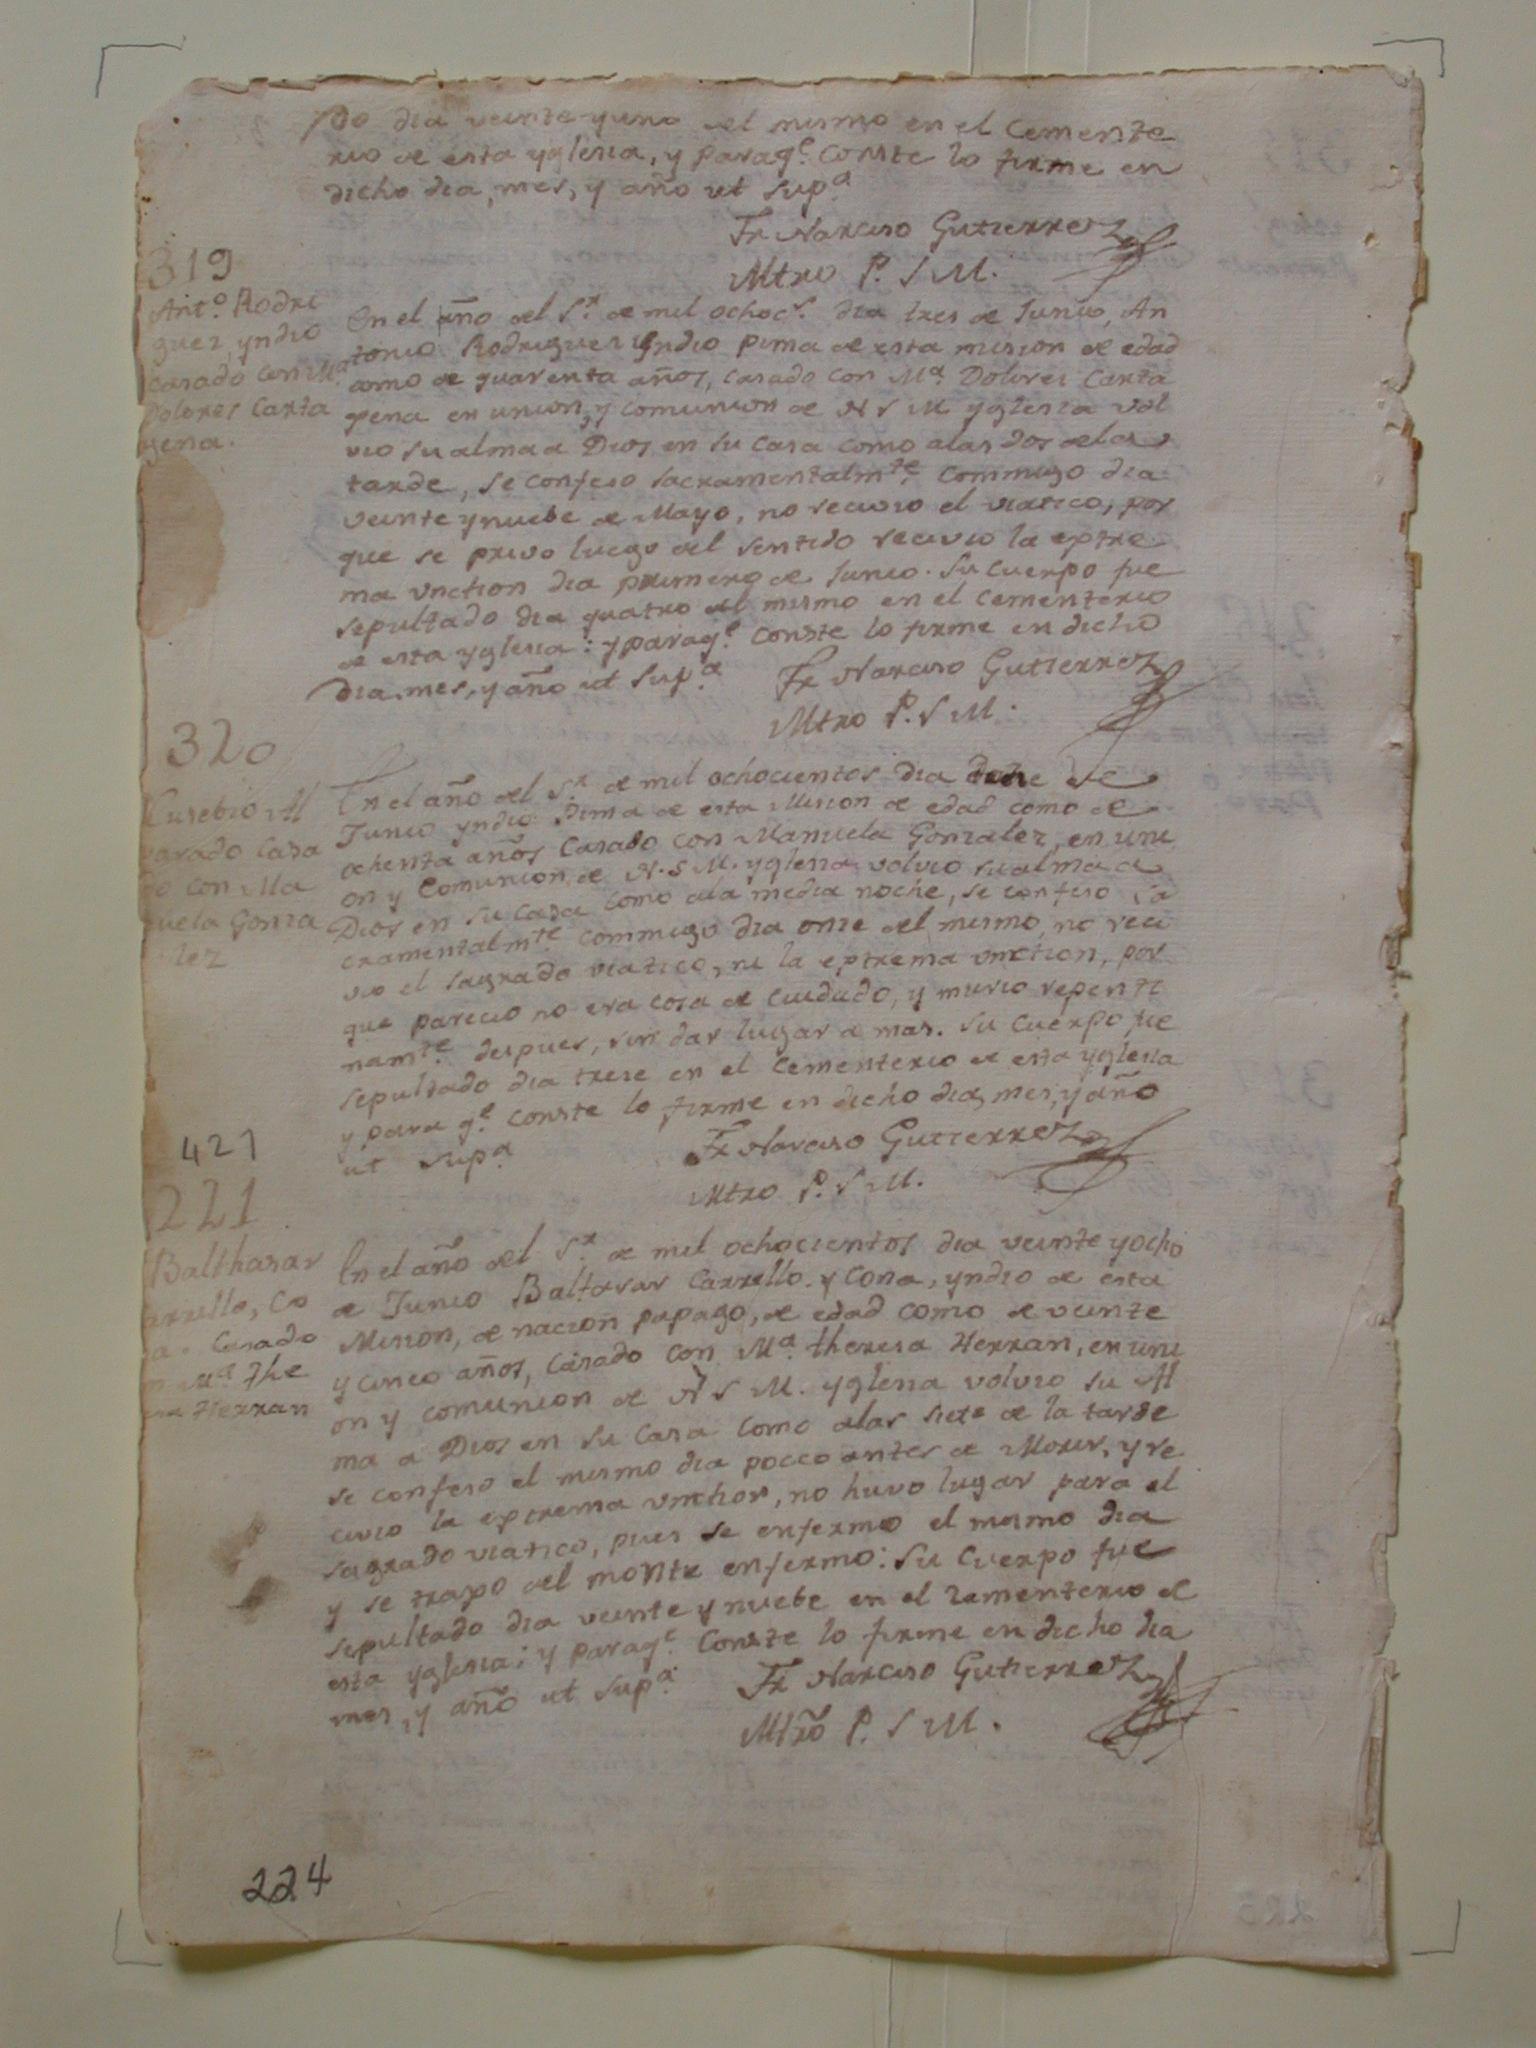 do dia veinte y uno del mismo en el Cemente
rio de esta yglesia, y paraq.e conste lo firme en
dicho dia, mes, y año ut sup.a
Fr Narciso Gutierrez
Mtro P. S M.
319
Ant.o Rodri
guez, yndio
casado con M.a
Dolores Carta
gena.
En el año del S.r de mil ochoc.s dia tres de Junio, An
tonio Rodriguez yndio pima de esta mision de edad
como de quarenta años, casado con M.a Dolores Carta
gena en union, y comunion de N S M yglesia vol
vio su alma a Dios en su casa como alas dos dela
tarde, se confeso sacramentalm.te commigo dia
veinte y nuebe de Mayo, no recivio el viatico, por
que se privo luego del sentido recivio la extre
ma vnction dia primero de Junio. Su cuerpo fue
sepultado dia quatro del mismo en el cementerio
de esta yglesia: y paraq.e conste lo firme en dicho
dia, mes, y año ut sup.a
Fr Narciso Gutierrez
Mtro P. S M.
320
Eusebio Al
varado casa
do con Ma
nuela Gonza
lez
En el año del S.r de mil ochocientos dia doze de
Junio yndio Pima de esta Mision de edad como de
ochenta años casado con Manuela Gonzalez, en uni
on y Comunion de N. S M. yglesia volvio su alma a
Dios en su casa como ala media noche, se confeso sa
cramentalm.te commigo dia onze del mismo, no reci
vio el sagrado viatico, ni la extrema vnction, por
que parecio no era cosa de cuidado, y murio repenti
nam.te despues, sin dar lugar a mas. Su cuerpo fue
sepultado dia treze en el cementerio de esta yglesia
y para q.e conste lo firme en dicho dia, mes, y año
ut sup.a
Fr Narciso Gutierrez
Mtro P. S M.
421
221
Balthasar
arrello, Co
a. Casado
n M.a The
esa Herran
En el año del S.r de mil ochocientos dia veinte y ocho
de Junio Baltasar Carrello y Cona, yndio de esta
Mision, de nacion papago, de edad como de veinte
y cinco años, casado con M.a theresa Herran, en uni
on y comunion de N S M. yglesia volvio su Al
ma a Dios en su casa como alas siete de la tarde
se confeso el mismo dia pocco antes de Morir, y re
civio la extrema vnction, no huvo lugar para el
sagrado viatico, pues se enfermo el mismo dia
y se trajo del monte enfermo: Su cuerpo fue
sepultado dia veinte y nuebe en el zementerio de
esta yglesia: y paraq.e conste lo firme en dicho dia
mes, y año ut sup.a
Fr Narciso Gutierrez
Mtrõ P. S M.
224